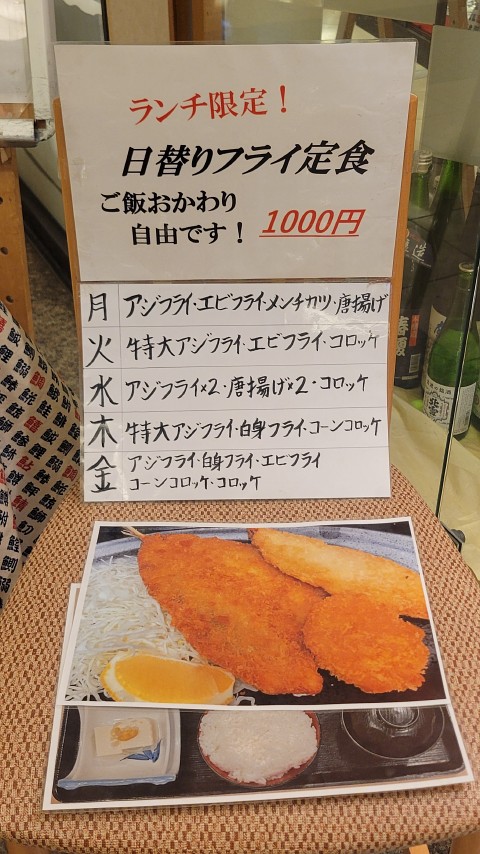 ランチ限定！
日替りフライ定食
ご飯おかわり
自由です！ 1000円
月 アジフライ・エビフライ・メンチカツ・唐揚げ
火 特大アジフライ・エビフライ・コロッケ
水 アジフライ×2・唐揚げ×2・コロッケ
木 特大アジフライ・白身フライ・コーンコロッケ
金 アジフライ・白身フライ・エビフライ
コーンコロッケ・コロッケ